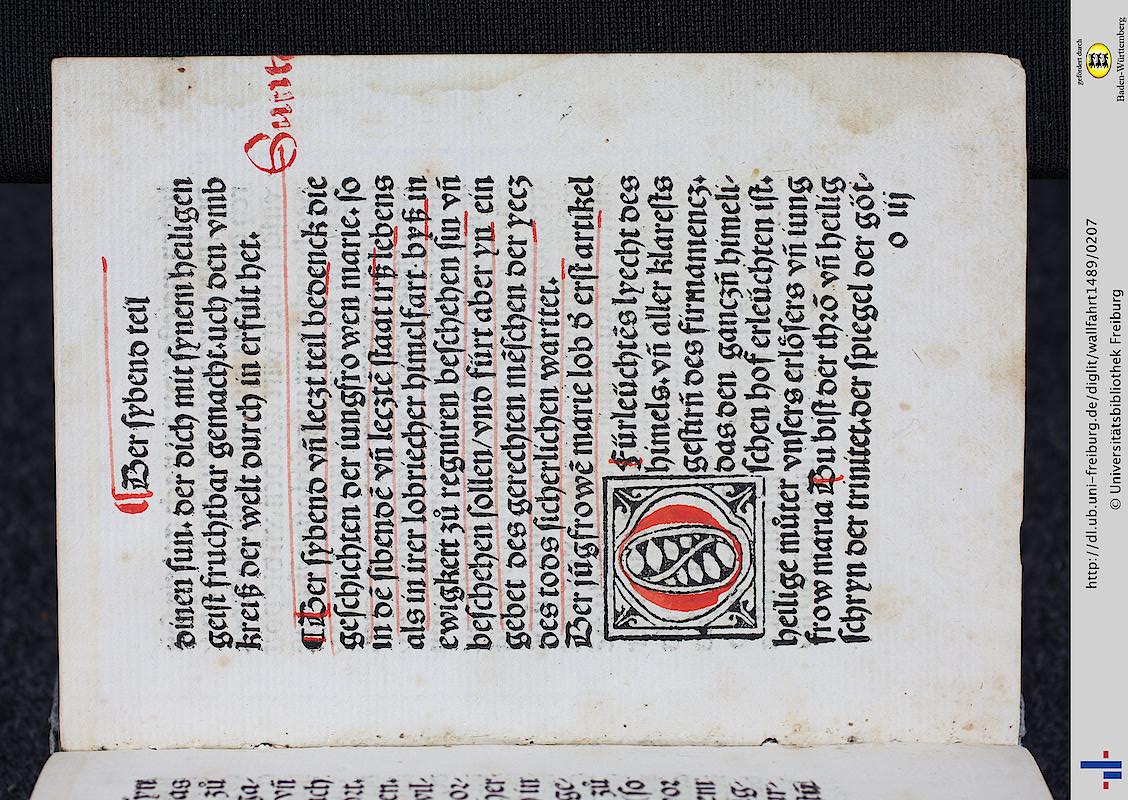 Der sybend teil
dinen sun. der dich mit synem heiligen
geist fruchtbar gemacht. uch den vmb
kreiß der welt durch in erfult het.
Sunt
Der sybend vn̄ leczt teil bedenck die
geschichten der iungfrowen marie. so
in dē sibendē vn̄ leczte staat irß lebens
als in irer lobriecher himelfart. byß in
ewigkeit zů regniren beschehen sin vn̄
beschehen sollen/ vnd fürt aber yn ein
gebet des gerechten mēschen der yecz
des tods sicherlichen warttet.
Der jūgfrowē marie lob d̄ erst artikel
O fürleüchtēs lyecht des
himels. vn̄ aller klarests
gestirn̄ des firmamencz.
das den ganczn̄ himeli-
schen hof erleüchten ist.
heilige můter vnsers erlösers vn̄ iung
frow maria Du bist der thrō vn̄ heilig
schryn der trinitet. der spiegel der göt-
o iij
yn
as
zů
ga-
vn̄
ach
en.
vil-
or-
her-
in
ge-
zů
so
vor
em
g-
ur-
http://dl.ub.uni-freiburg.de/diglit/wallfahrt1489/0207
© Universitätsbibliothek Freiburg
gefördert durch
Baden-Württemberg